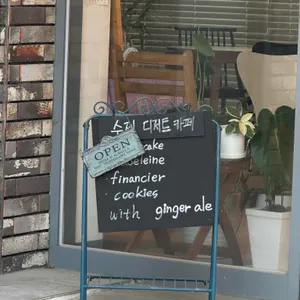 수제 디저트 카페
cake
OPEN
eleine
· financier
· cookies
with ginger ale